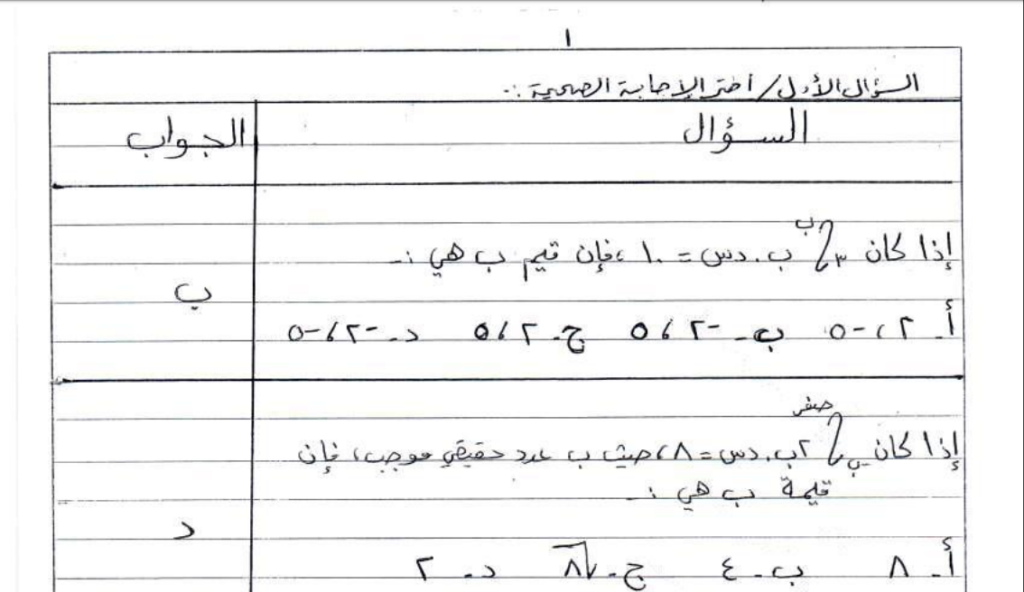 ١
السؤال الأول/ اختر الإجابة الصحيحة :-
السؤال
الجواب
إذا كان ∫٣^ب ب.دس = ١٠ ، فإن قيم ب هي :-
أ- ٢ ، -٥ ب- -٢ ، ٥ ج- ٢ ، ٥ د- -٢ ، -٥
ب
إذا كان ∫-ب^صفر ٢ب.دس = ٨ ، حيث ب عدد حقيقي موجب ، فإن
قيمة ب هي :-
أ- ٨ ب- ٤ ج- √٨ د- ٢
د